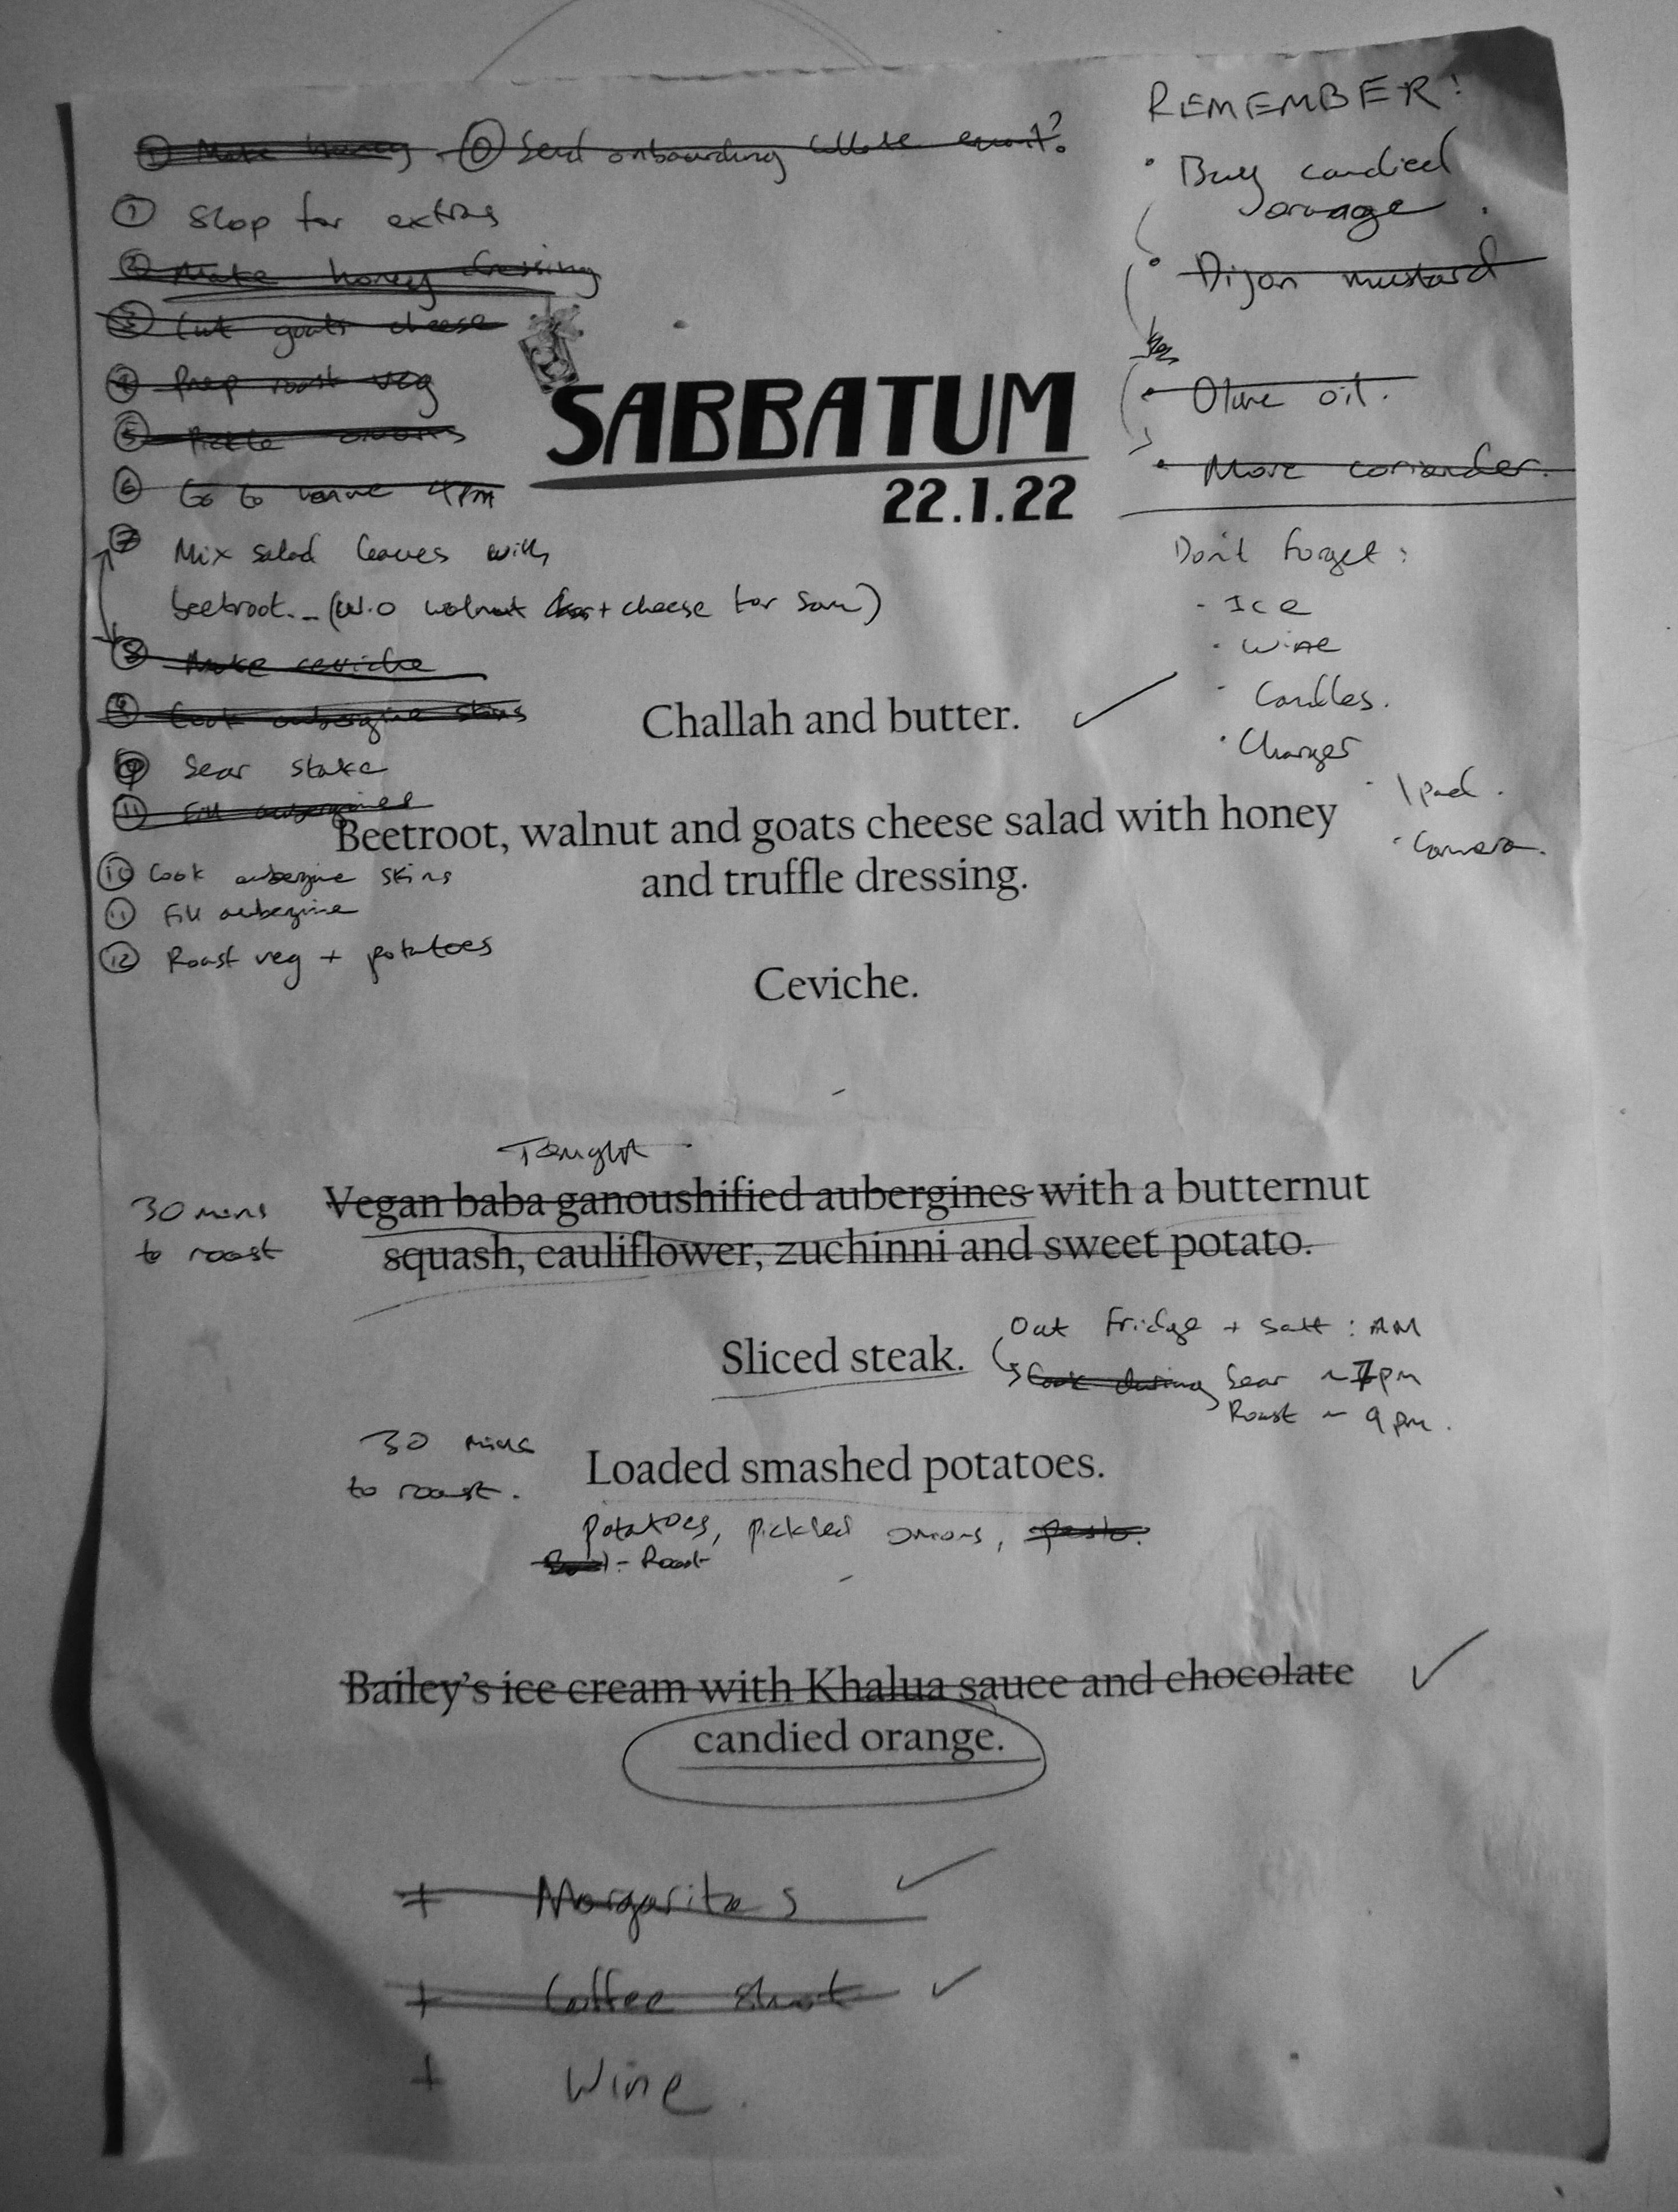 ① Make honey
⓪ Send onboarding welcome email?
① Shop for extras
② Make honey dressing
③ Cut goats cheese
④ Prep roast veg
⑤ Pickle onions
⑥ Go to venue 4pm
⑦ Mix salad leaves with
beetroot. - (W.O walnut + cheese for Sam)
⑧ Make ceviche
⑨ Cook aubergine skins
⑨ Sear stake
⑪ Fill aubergines
⑩ Cook aubergine skins
⑪ Fill aubergine
⑫ Roast veg + potatoes
REMEMBER!
• Buy candied
orange.
• Dijon mustard
• Olive oil.
• More coriander.
Don't forget:
- Ice
- Wine
- Candles.
• Charger
- Ipad.
- Camera.
SABBATUM
22.1.22
Challah and butter.
Beetroot, walnut and goats cheese salad with honey
and truffle dressing.
Ceviche.
Tonight
30 mins
to roast
Vegan baba ganoushified aubergines with a butternut
squash, cauliflower, zuchinni and sweet potato.
Sliced steak.
Out Fridge + salt : AM
Cook during Sear ~ 7pm
Roast ~ 9pm.
30 mins
to roast.
Loaded smashed potatoes.
potatoes, pickled onions, pesto.
- Roast
Bailey's ice cream with Khalua sauce and chocolate
candied orange.
+ Margaritas
+ Coffee shot
+ Wine.